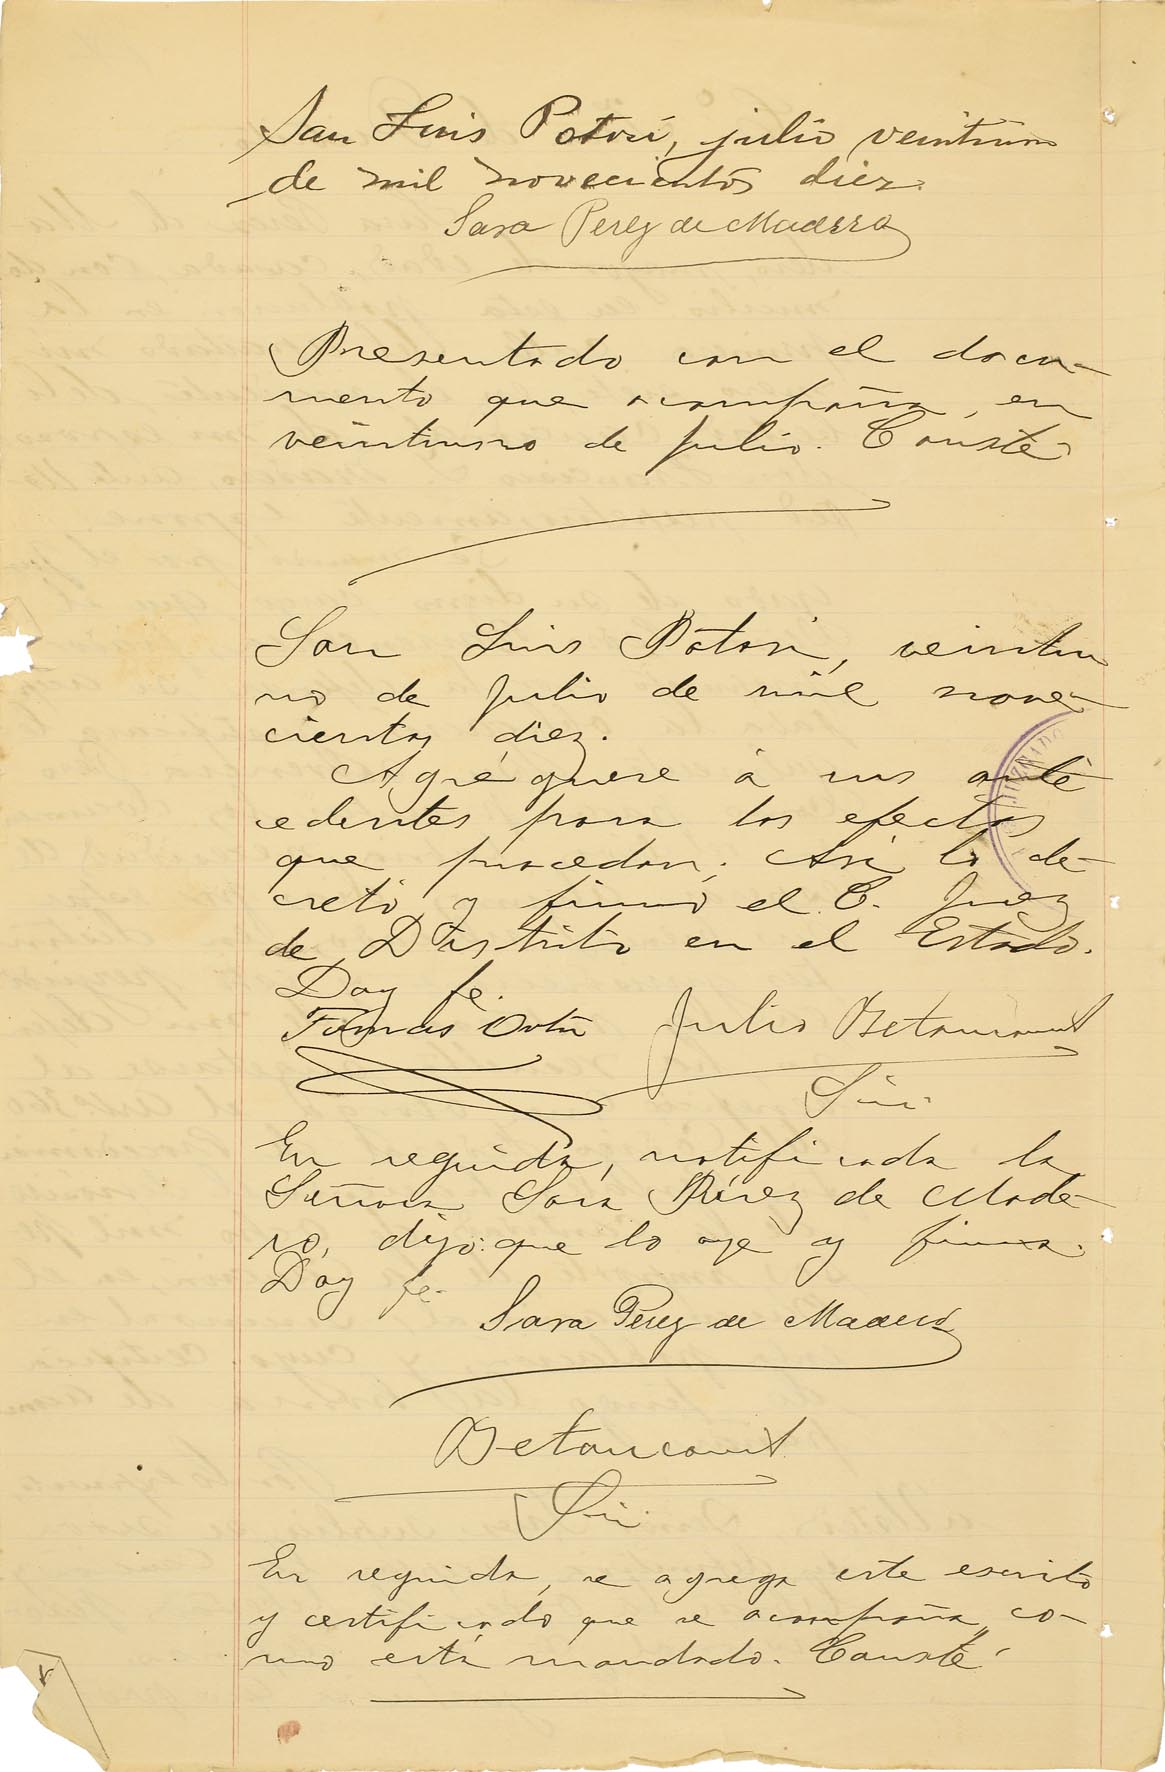 San Luis Potosí, julio veintiuno
de mil novecientos diez.
Sara Perez de Madero
Presentado con el docu-
mento que acompaña, en
veintiuno de julio. Conste.
San Luis Potosi, veintiu
no de julio de mil nove-
cientos diez.
Agréguese á sus ante
cedentes para los efectos
que procedan; Así lo de-
cretó y firmó el C. Juez
de Distrito en el Estado.
Doy fe.
Tomas Ortiz Julio Betancourt
Srio.
En seguida, notificada la
Señora Sara Pérez de Made-
ro, dijo: que lo oye y firma.
Doy fe.
Sara Perez de Madero
Betancourt
Srio.
En seguida, se agrega este escrito
y certificado que se acompaña, co-
mo está mandado. Conste.
JUZGADO